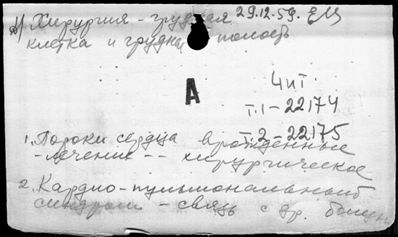 д) Хирургия - грудная 29.12.59. ЕМ
клетка и грудная полость
A
Чит.
т.1-22174
т.2-22175
1. Пороки сердца врожденные
- лечение -- хирургическое
2. Кардио-пульмональный
синдром - связь с др. болезн